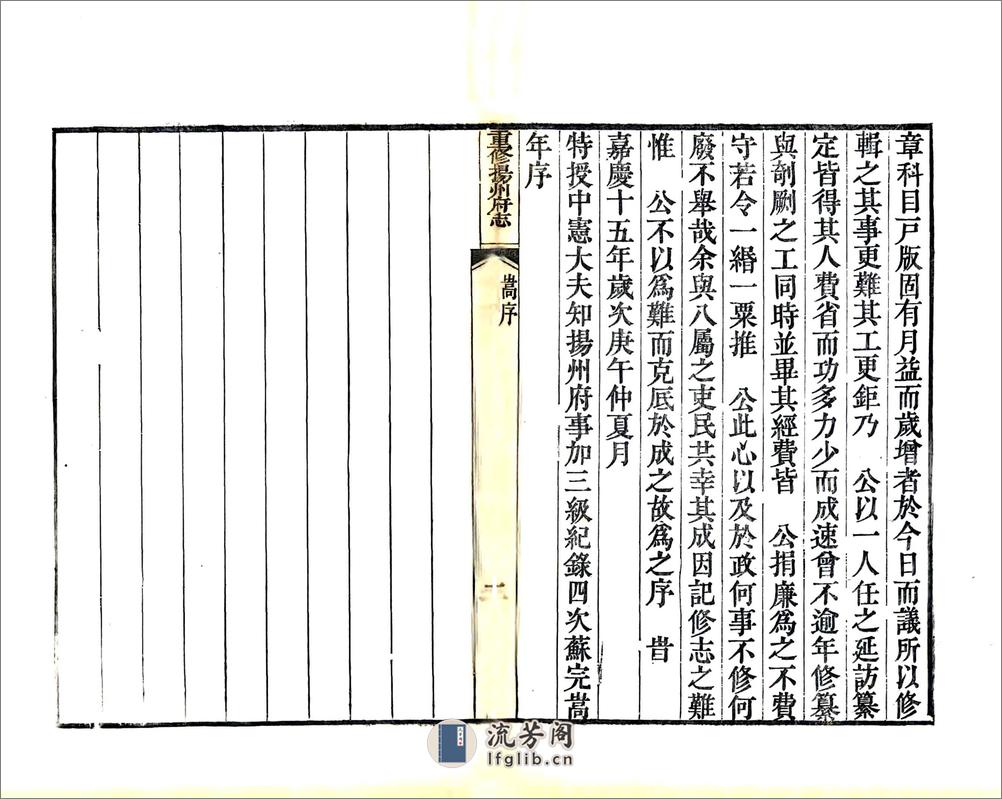 章科目戸版固有月益而歲增者於今日而議所以修
輯之其事更難其工更鉅乃　公以一人任之延訪纂
定皆得其人費省而功多力少而成速曾不逾年修纂
與剞劂之工同時並畢其經費皆　公捐廉爲之不費
守若令一緡一粟推　公此心以及於政何事不修何
廢不舉哉余與八屬之吏民其幸其成因記修志之難
惟　公不以爲難而克厎於成之故爲之序　昔
嘉慶十五年歲次庚午仲夏月
特授中憲大夫知揚州府事加三級紀錄四次蘇完嵩
年序
重修揚州府志
嵩序
流芳阁
lfglib.cn